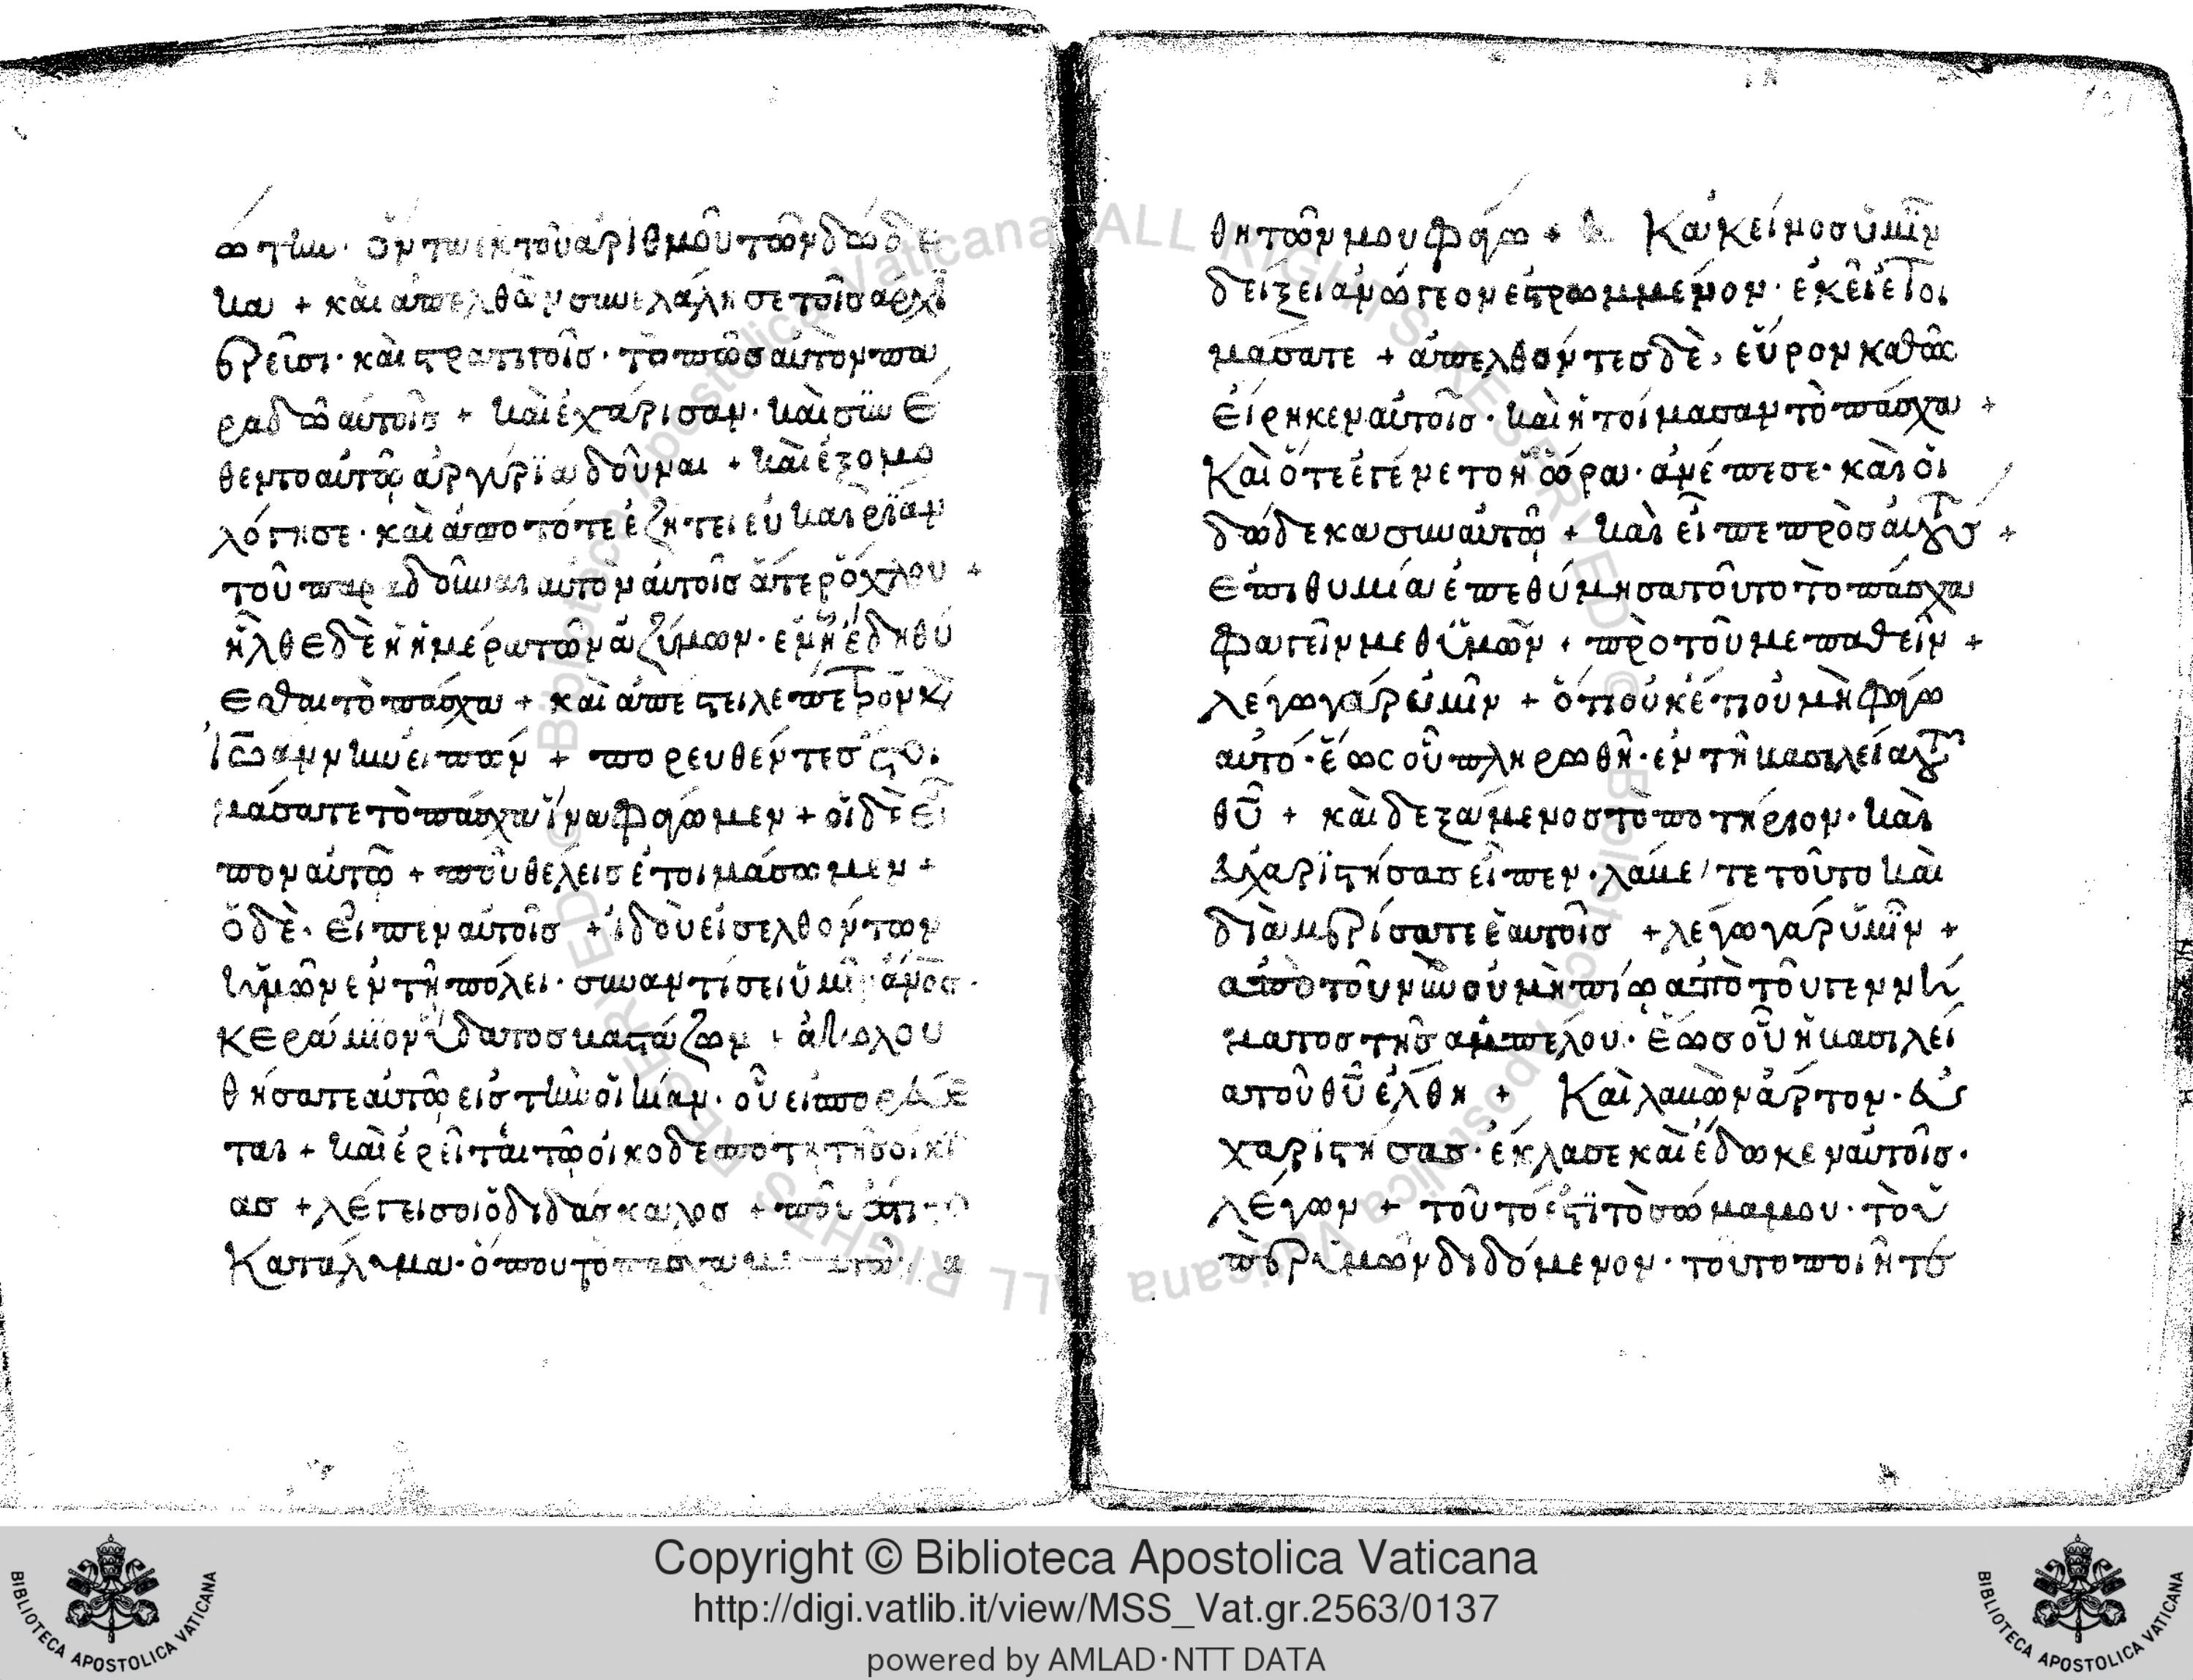 ώτην· ὄντα ἐκ τοῦ ἀριθμοῦ τῶν δώδε
κα + καὶ ἀπελθὼν συνελάλησε τοῖς ἀρχι
ερεῦσι· καὶ στρατιγοῖς· τὸ πῶς αὐτὸν πα
ραδῶ αὐτοῖς + καὶ ἐχάρισαν· καὶ συν έ
θεντο αὐτῶ ἀργύρϊα δοῦναι + καὶ ἐξομο
λόγησε· καὶ ἀπο τότε ἐζήτει εὐκαιρίαν
τοῦ παραδοῦναι αὐτὸν αὐτοῖς ἄτερ ὄχλου +
ἦλθε δὲ ἡ ἡμέρα τῶν ἀζύμων· ἐν ἧ ἔδη θύ
εσθαι τὸ πάσχα + καὶ ἀπέστειλε πέτρον κ
Ἰωάννην εἰπών + πορευθέντες ἑτοι
μάσατε τὸ πάσχα ἵνα φάγωμεν + οἱ δὲ εἶ
πον αὐτῶ + ποῦ θέλεις ἑτοιμάσωμεν +
ὁ δὲ· εἶπεν αὐτοῖς + ἰδοὺ εἰσελθόντων
ὑμῶν ἐν τῆ πόλει· συναντίσει ὑμῖν ἄνος·
κεράμιον ὕδατος βαστάζων + ἀκολου
θήσατε αὐτῶ εἰς τὴν οἰκίαν· οὗ εἰσπορεύε
ται + καὶ ἐρεῖται τῶ οἰκοδεσπότη τῆς οἰκί
ας + λέγει σοι ὁ διδάσκαλος + ποῦ ἐστι τὸ
Κατάλυμα· ὅπου τὸ πάσχα μετὰ τῶν μα
θητῶν μου φάγω + Κακεῖνος ὑμῖν
δείξει ἀνώγεον ἐστρωμμένον· ἐκεῖ ἑτοι
μάσατε + ἀπελθόντες δὲ, εὗρον καθὼς
εἴρηκεν αὐτοῖς· καὶ ἡτοίμασαν τὸ πάσχα +
Καὶ ὅτε ἐγένετο ἡ ὥρα· ἀνέπεσε· καὶ οἱ
δώδεκα συν αὐτῶ + καὶ εἶπε πρὸς αὐτούς +
Επιθυμία ἐπεθύμησα τοῦτο τὸ πάσχα
φαγεῖν μεθ ὑμῶν + πρὸ τοῦ με παθεῖν +
λέγω γὰρ ὑμῖν + ὅτι οὐκέτι οὐ μὴ φάγω
αὐτό· ἕως οὗ πληρωθῆ· ἐν τῆ βασιλεία τοῦ
θῦ + καὶ δεξάμενος τὸ ποτήριον· καὶ
εὐχαριστήσας εἶπεν· λάβετε τοῦτο καὶ
διαμερίσατε ἑαυτοῖς + λέγω γὰρ ὑμῖν +
ἀπὸ τοῦ νῦν οὐ μὴ πίω ἀπὸ τοῦ γεννή
ματος τῆς ἀμπέλου· ἕως οὗ ἡ βασιλεί
α τοῦ θῦ ἔλθη + Καὶ λαβὼν ἄρτον· εὐ
χαριστήσας· ἔκλασε καὶ ἔδωκεν αὐτοῖς·
λέγων + τοῦτό ἐστι τὸ σῶμα μου· τὸ ὑ
πὲρ ὑμῶν διδόμενον· τοῦτο ποιῆτε
Copyright © Biblioteca Apostolica Vaticana
http://digi.vatlib.it/view/MSS_Vat.gr.2563/0137
powered by AMLAD·NTT DATA
BIBLIOTECA APOSTOLICA VATICANA
BIBLIOTECA APOSTOLICA VATICANA